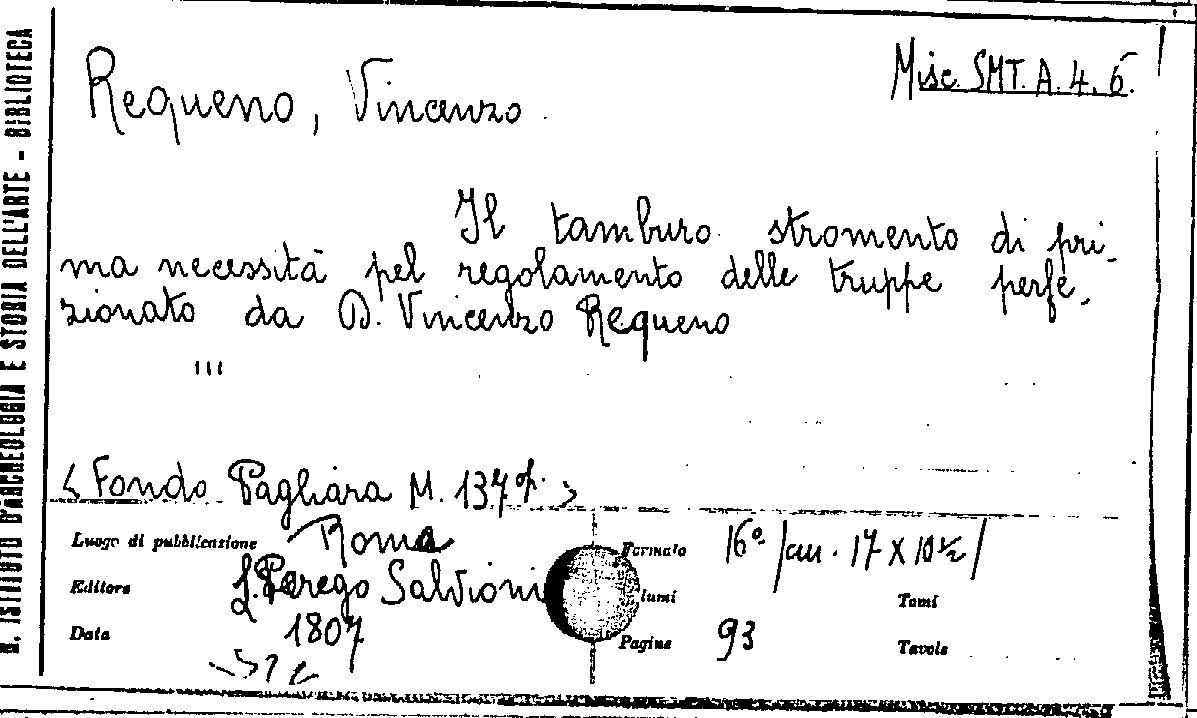 R. ISTITUTO D'ARCHEOLOGIA E STORIA DELL'ARTE - BIBLIOTECA
Requeno, Vincenzo
Misc. SMT. A. 4. 6.
Il tamburo stromento di pri-
ma necessità pel regolamento delle truppe perfe-
zionato da D. Vincenzo Requeno
<Fondo Pagliara M. 137 >
Luogo di pubblicazione Roma
Formato 16° /cm. 17 X 10½/
Editore L. Perego Salvioni
lumi
Tomi
Data 1807
Pagine 93
Tavole